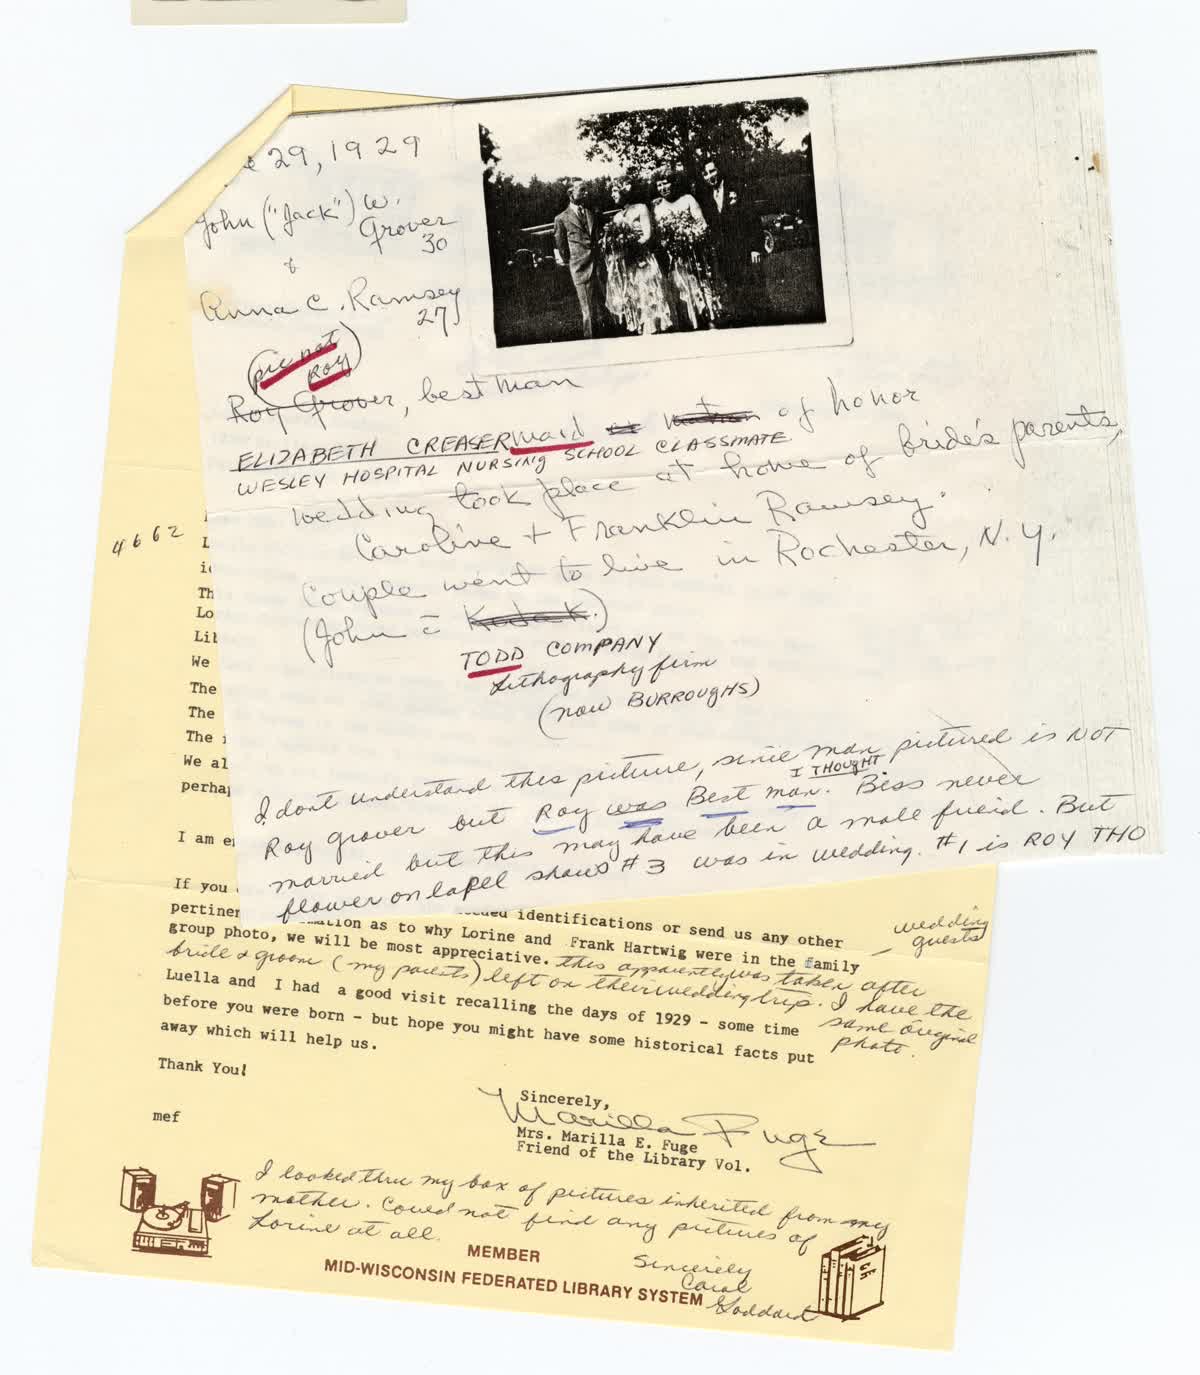 29, 1929
John ("Jack") W.
Grover
'30
&
Anna C. Ramsey
27
(pic not
Roy)
Roy Grover, best man
ELIZABETH CREASER maid or matron of honor
WESLEY HOSPITAL NURSING SCHOOL CLASSMATE.
wedding took place at home of bride's parents,
Caroline + Franklin Ramsey.
Couple went to live in Rochester, N.Y.
(John = Kodak.)
TODD COMPANY
Lithography firm
(now BURROUGHS)
I dont understand this picture, since man pictured is NOT
I THOUGHT
Roy grover but Roy was Best man. Bess never
married but this may have been a male friend. But
flower on lapel shows #3 was in wedding. #1 is ROY THO
4662
L
Th
Lo
Lib
We
The
The
The
We al
perhap
I am e
If you
identifications or send us any other
pertinen
mation as to why Lorine and Frank Hartwig were in the family
wedding
guests
group photo, we will be most appreciative. this apparently was taken after
bride & groom (my parents) left on their wedding trip. I have the
same original
photo.
Luella and I had a good visit recalling the days of 1929 - some time
before you were born - but hope you might have some historical facts put
away which will help us.
Thank You!
Sincerely,
Marilla Fuge
mef
Mrs. Marilla E. Fuge
Friend of the Library Vol.
I looked thru my box of pictures inherited from my
mother. Could not find any pictures of
Lorine at all.
Sincerely
Carol
Goddard
MEMBER
MID-WISCONSIN FEDERATED LIBRARY SYSTEM